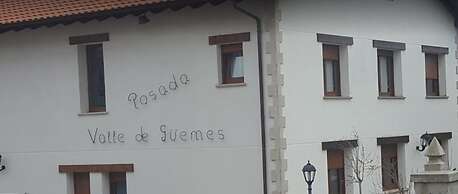 Posada
Valle de Guemes